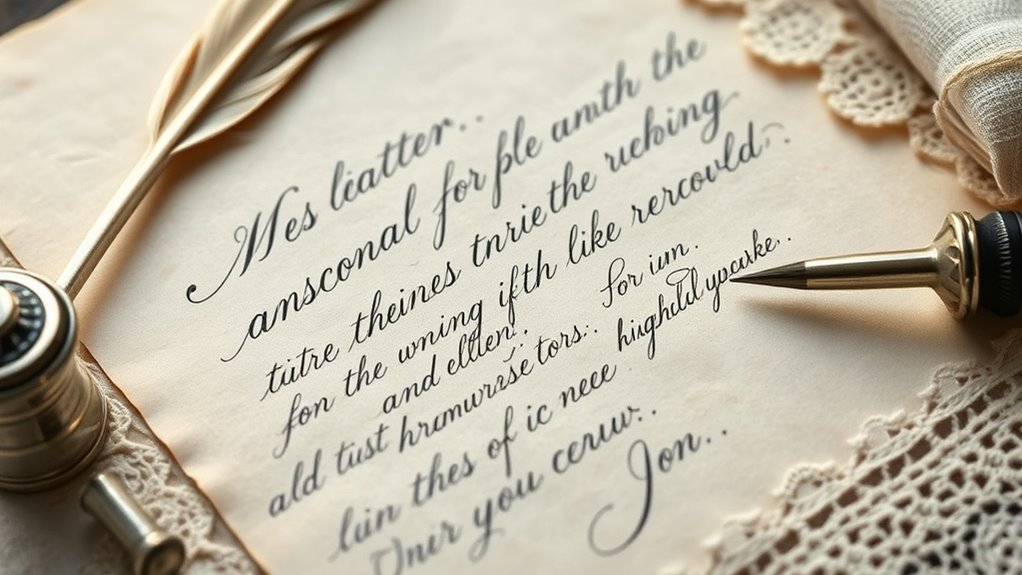 Mes leatter..
amsconal for ple amth the
tuitre theines tnrie the ruehoing
fon the wnning ifth like rercovld..
and ellen!. For ium.
ald tust hrumwrzse tors:. highdld ypurke..
luin thes of ic neee
Onur you ceruw:.
Jon..